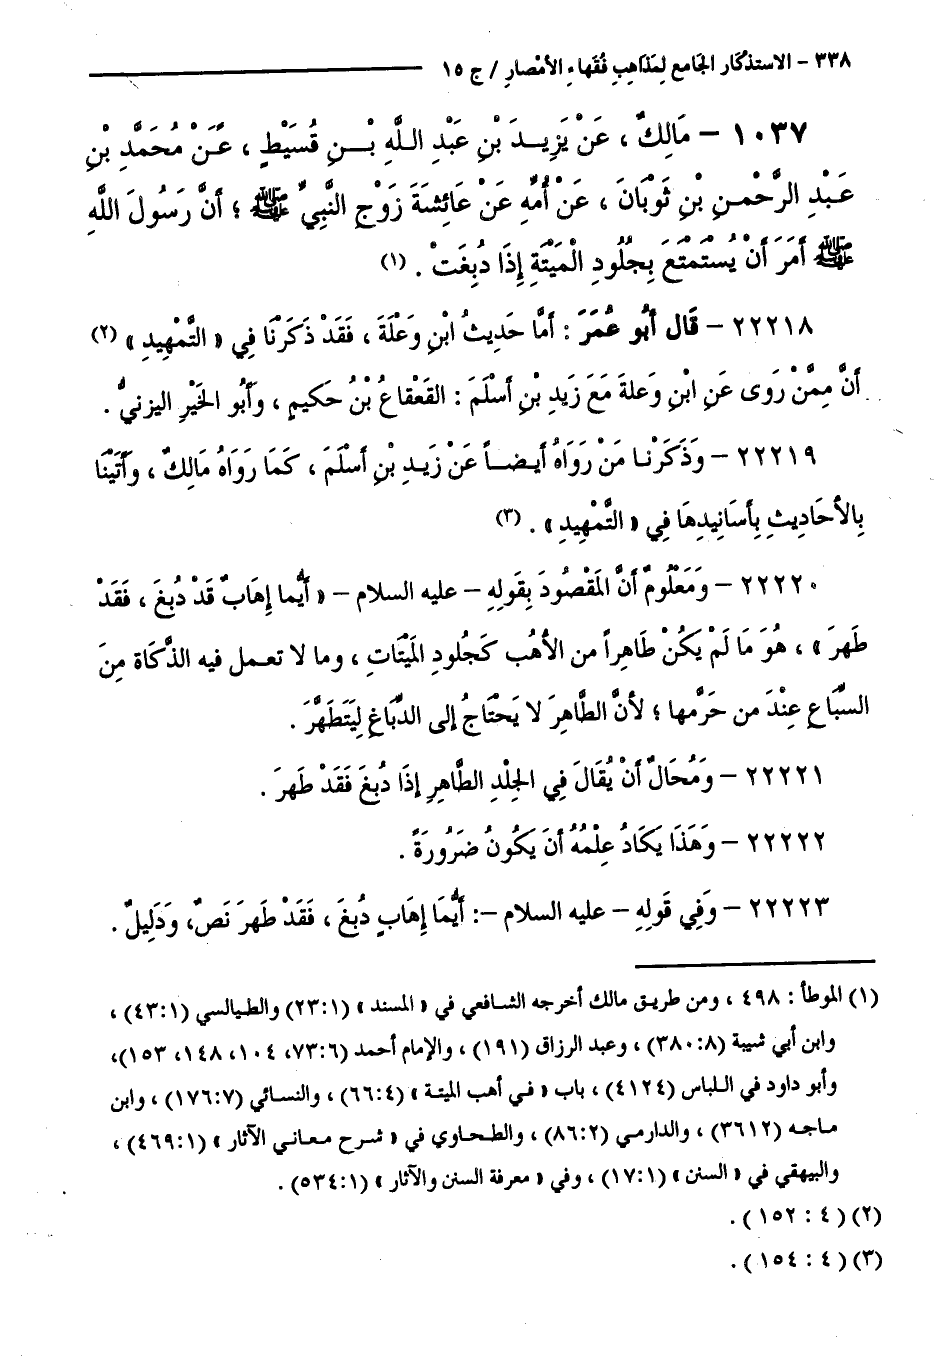 ٣٣٨ - الاستذكار الجامع لِمَذاهِبِ فُقَهاءِ الأمْصارِ / ج ١٥
١٠٣٧ - مَالِكٌ ، عَنْ يَزِيدَ بْنِ عَبْدِ اللَّهِ بْنِ قُسَيْطٍ ، عَنْ مُحَمَّدِ بْنِ
عَبْدِ الرَّحْمنِ بْنِ ثَوْبَانَ ، عَنْ أُمِّهِ عَنْ عَائِشَةَ زَوْجِ النَّبِيِّ ﷺ ؛ أَنَّ رَسُولَ اللَّهِ
ﷺ أَمَرَ أَنْ يُسْتَمْتَعَ بِجُلُودِ الْمَيْتَةِ إِذَا دُبِغَتْ . (١)
٢٢٢١٨ - قَالَ أَبُو عُمَرَ : أَمَّا حَدِيثُ ابْنِ وَعْلَةَ ، فَقَدْ ذَكَرْنَا فِي « التَّمْهِيدِ » (٢)
أَنَّ مِمَّنْ رَوَى عَنِ ابْنِ وَعلةَ مَعَ زَيدِ بْنِ أَسْلَمَ : القَعْقاعُ بْنُ حَكيمٍ ، وَأَبُو الخَيْرِ اليزنيُّ .
٢٢٢١٩ - وَذَكَرْنا مَنْ رَوَاهُ أيضاً عَنْ زَيدِ بْنِ أَسْلَمَ ، كَمَا رَوَاهُ مَالِكٌ ، وَأَتَيْنَا
بِالأَحَادِيثِ بِأَسَانِيدِهَا فِي « التَّمْهِيدِ » . (٣)
٢٢٢٢٠ - وَمَعْلُومٌ أَنَّ المَقْصُودَ بِقَولِهِ - عليه السلام - « أَيُّما إِهَابٌ قَدْ دُبغَ ، فَقَدْ
طَهرَ » ، هُوَ مَا لَمْ يَكُنْ طَاهِراً من الأهُب كَجُلودِ المَيْتَاتِ ، وما لا تعمل فيه الذَّكَاة مِنَ
السِّبَاعِ عِنْدَ من حَرَّمها ؛ لأنَّ الطَّاهِرَ لا يَحْتَاجُ إلى الدِّبَاغِ لِيَتَطَهَّرَ .
٢٢٢٢١ - وَمُحَالٌ أَنْ يُقَالَ فِي الجِلْدِ الطَّاهِرِ إِذَا دُبغَ فَقَدْ طَهرَ .
٢٢٢٢٢ - وَهَذَا يَكَادُ عِلْمُهُ أَنْ يَكُونُ ضَرُورَةً .
٢٢٢٢٣ - وَفِي قَولِهِ - عليه السلام -: أَيُّمَا إِهَابٍ دُبغَ ، فَقَدْ طَهرَ نَصٌ، وَدَلِيلٌ .
(١) الموطأ : ٤٩٨ ، ومن طريق مالك أخرجه الشافعي في « المسند » (١:٢٣) والطيالسي (١:٤٣) ،
وابن أبي شيبة (٨:٣٨٠) ، وعبد الرزاق (١٩١) ، والإمام أحمد (٦:٧٣، ١٠٤، ١٤٨، ١٥٣)،
وأبو داود في اللباس (٤١٢٤) ، باب « في أهب الميتة » (٤:٦٦) ، والنسائي (٧:١٧٦) ، وابن
ماجه (٣٦١٢) ، والدارمي (٢:٨٦) ، والطحاوي في « شرح معاني الآثار » (١:٤٦٩) ،
والبيهقي في « السنن » (١:١٧) ، وفي « معرفة السنن والآثار » (١:٥٣٤) .
(٢) ( ٤ : ١٥٢ ) .
(٣) ( ٤ : ١٥٤ ) .